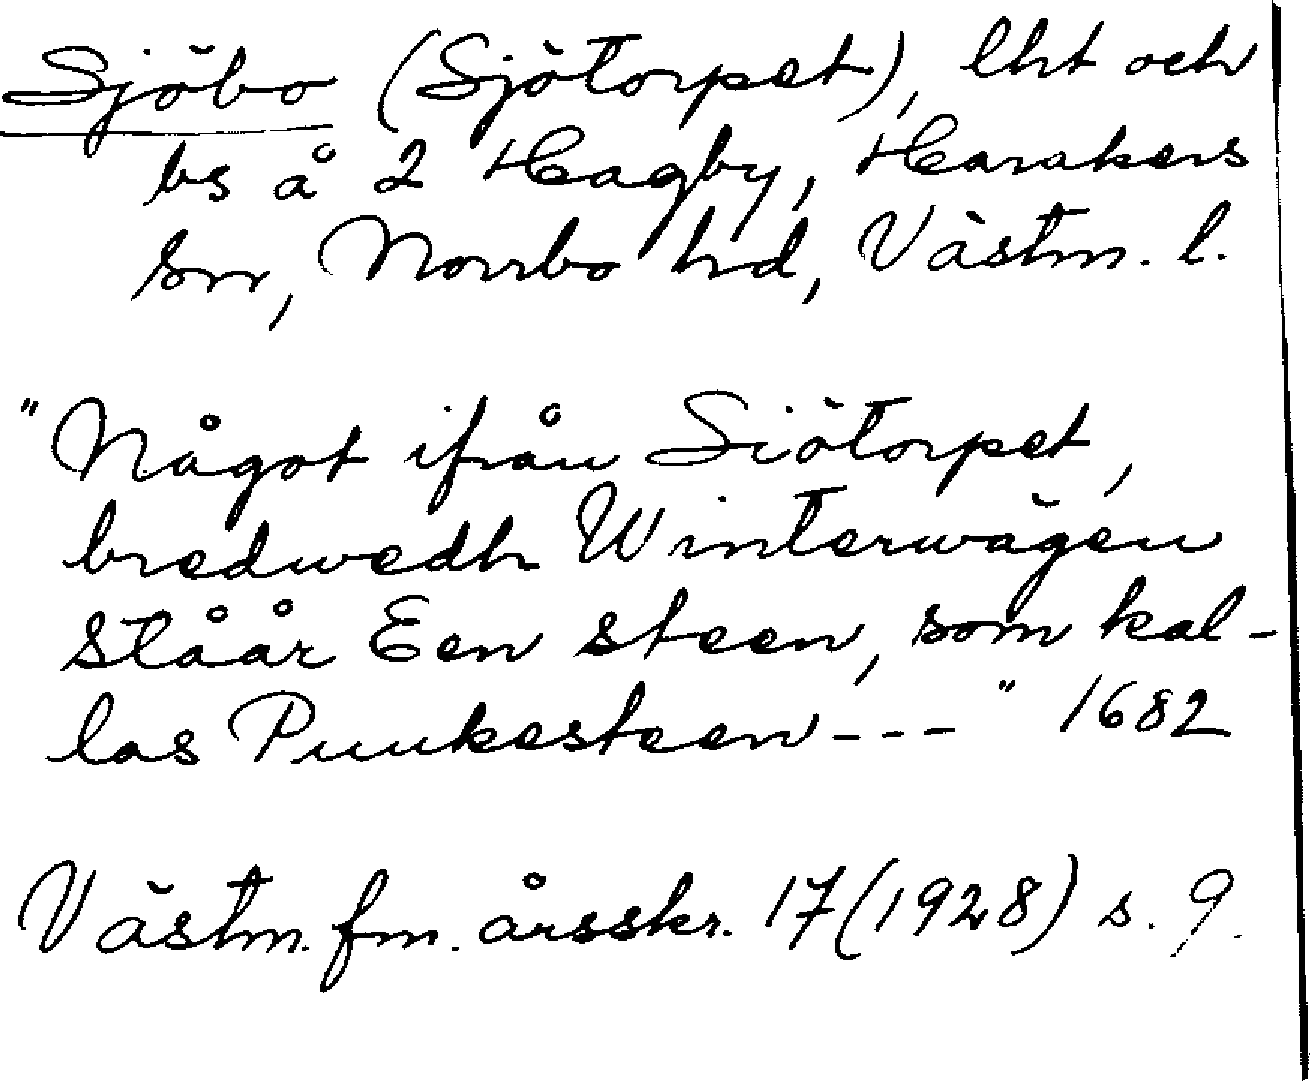 Sjöbo (Sjötorpet), lht och
bs å 2 Hagby, Harakers
sn, Norrbo hd, Västm. l.
"Något ifrån Siötorpet,
bredwedh Winterwägen
ståår Een steen, som kal-
las Puukesteen---" 1682
Västm. fm. årsskr. 17 (1928) s. 9.